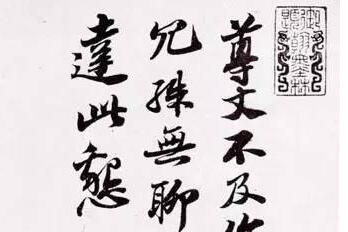 尊丈不及
兄殊無聊
達此懇